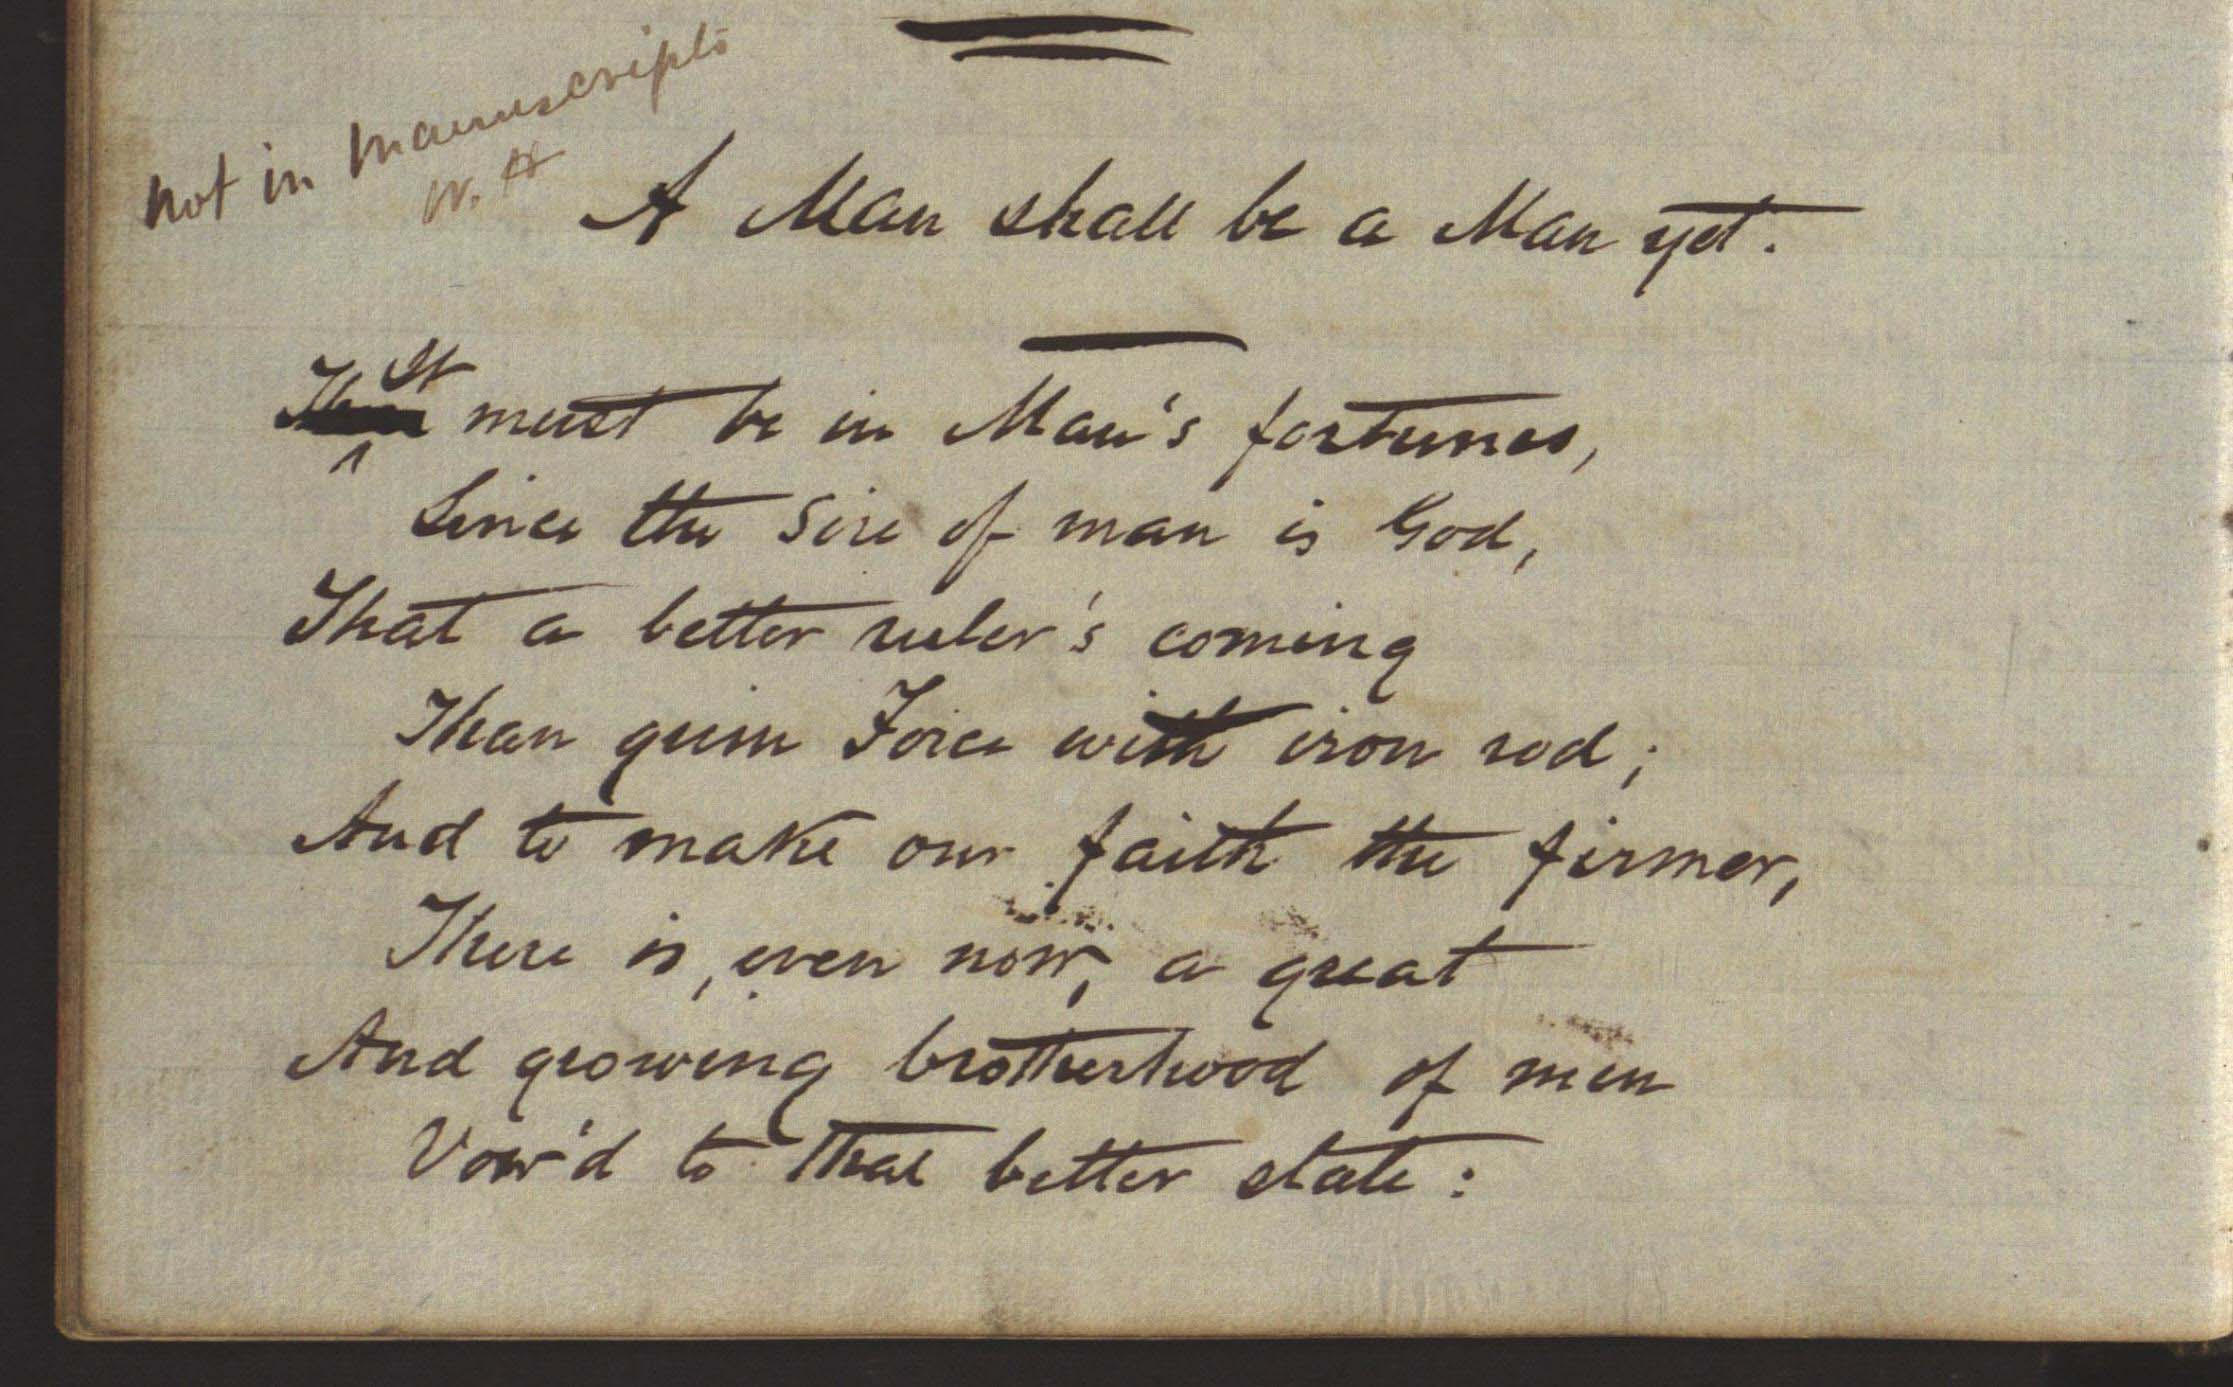 not in manuscripts
W. H
A Man shall be a Man yet.
It must be in Man's fortunes,
Since the Sire of man is God,
That a better ruler's coming
Than grim Force with iron rod;
And to make our faith the firmer,
There is, even now, a great
And growing brotherhood of men
Vow'd to that better state: